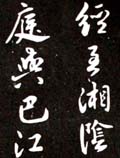 經湘陰
庭與巴江